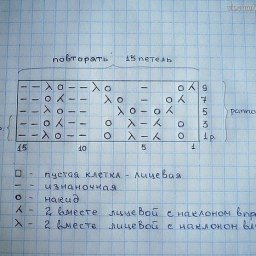 повторять 15 петель
9
7
раппо
5
3
15 10 5 1 1р.
□ - пустая клетка - лицевая
— - изнаночная
о - накид
⋌ - 2 вместе лицевой с наклоном впра
λ - 2 вместе лицевой с наклоном вл